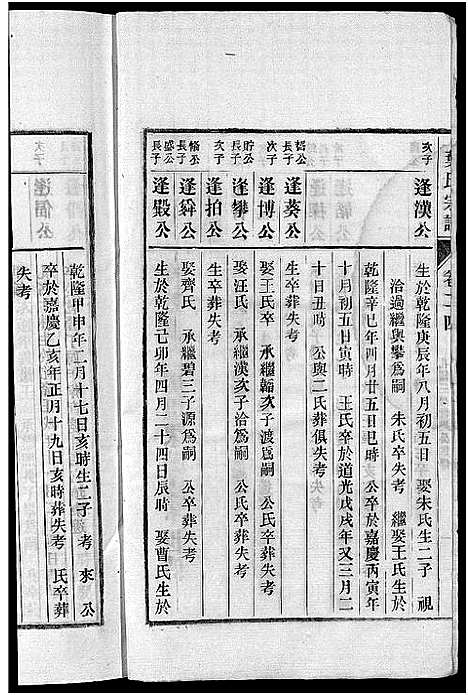 氏宗譜
卷二十四
次子
逢漢公
生於乾隆庚辰年八月初五日 娶朱氏生二子 視
洽過繼與攀爲嗣 朱氏卒失考 繼娶王氏生於
乾隆辛巳年四月廿五日巳時 公卒於嘉慶丙寅年
十月初五日寅時 王氏卒於道光戊戌年又三月二
十日丑時 公與二氏葬俱失考
長子
逢葵公
生卒葬失考
次子
逢博公
娶王氏 承繼輻次子渡爲嗣 公氏卒葬失考
貯公
長子
逢攀公
娶汪氏 承繼漢次子洽爲嗣 公氏卒葬失考
次子
逢拍公
生卒葬失考
盛公
長子
逢舜公
娶齊氏 承繼碧三子源爲嗣 公卒葬失考
長子
逢殿公
生於乾隆己卯年四月二十四日辰時 娶曹氏生於
乾隆甲申年二月十七日亥時生二子 考 來 公
卒於嘉慶乙亥年正月十九日亥時葬失考 氏卒葬
失考
次子
逢侶公